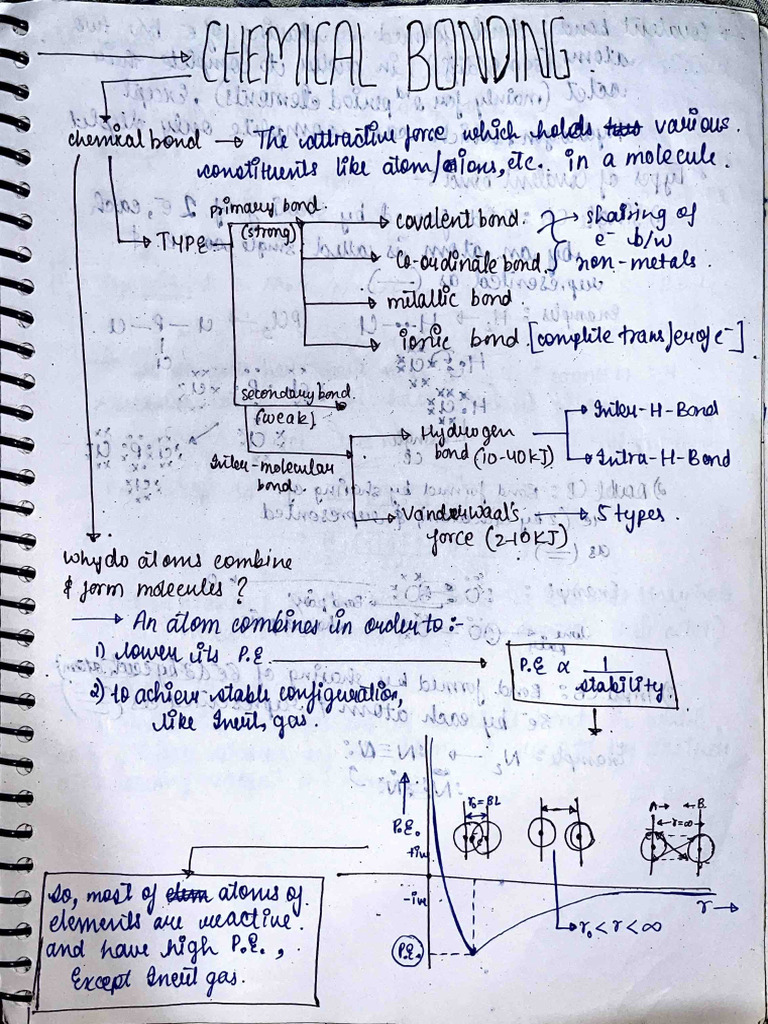 CHEMICAL BONDING
chemical bond → The attractive force which holds various
constituents like atom/ions, etc. in a molecule.
primary bond.
(strong)
TYPE
covalent bond. → sharing of
e⁻ b/w
Co-ordinate bond. non-metals.
metallic bond.
ionic bond. [complete transfer of e⁻]
secondary bond
(weak)
Inter-molecular
bond.
Hydrogen
bond (10-40KJ)
Inter-H-Bond
Intra-H-Bond
Vanderwaal's → 5 types.
force (2-10KJ)
why do atoms combine
& form molecules?
→ An atom combines in order to:-
1) lower its P.E
P.E ∝ 1/stability
2) to achieve stable configuration,
like Inert gas.
r₀ = BL
A→ ←B
r=∞
P.E.
+ive
-ive
r →
r₀ < r < ∞
P.E.
So, most of atoms of
elements are reactive.
and have high P.E.,
Except Inert gas.